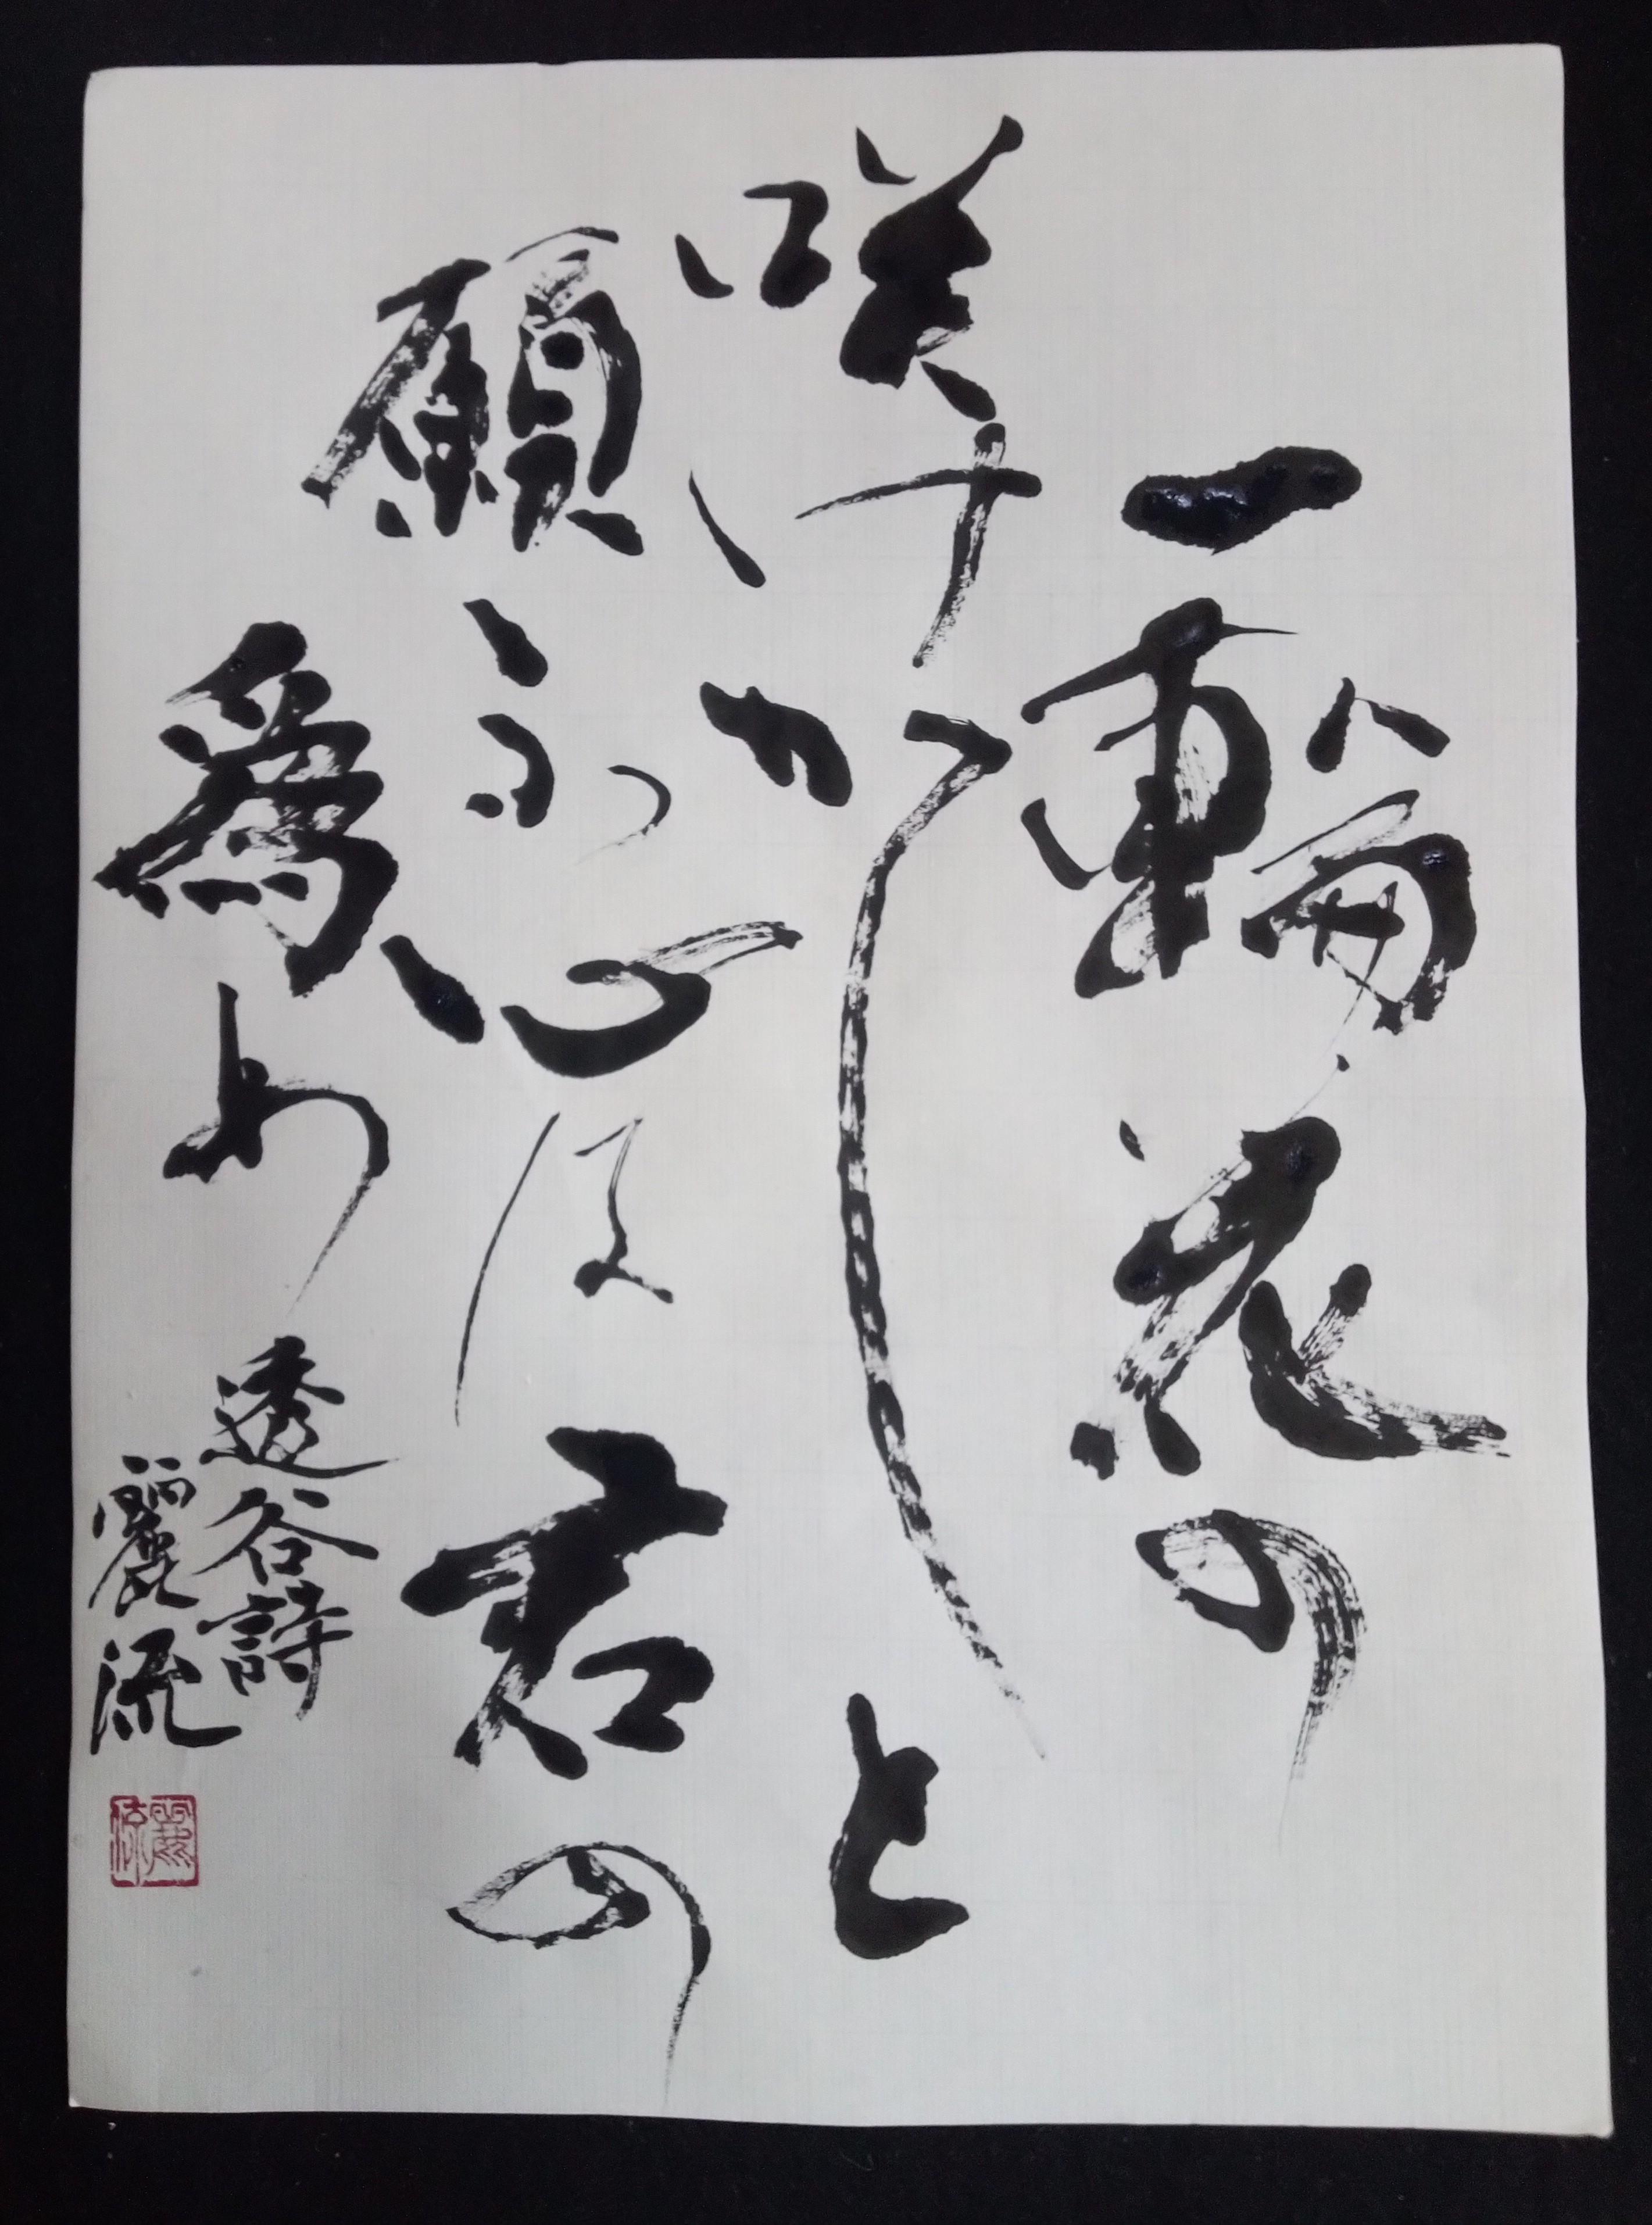 一輪花の
咲けかしと
願ふ心は君の
為め
透谷詩
麗流
麗流